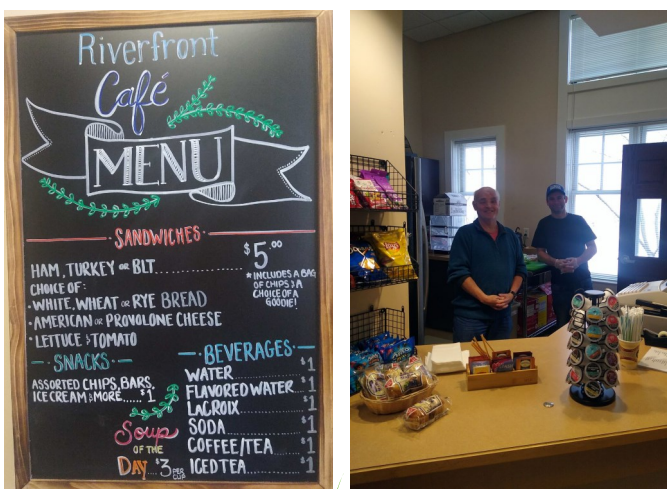 Riverfront
Café
MENU
SANDWICHES
$5.00
HAM, TURKEY OR BLT
* INCLUDES A BAG
OF CHIPS & A
CHOICE OF A
GOODIE!
CHOICE OF:
• WHITE, WHEAT OR RYE BREAD
• AMERICAN OR PROVOLONE CHEESE
• LETTUCE & TOMATO
• SNACKS •
ASSORTED CHIPS, BARS,
ICE CREAM & MORE.....$1
• BEVERAGES •
WATER $1
FLAVORED WATER $1
LACROIX $1
SODA $1
COFFEE/TEA $1
ICED TEA $1
Soup
OF THE
DAY $3 PER CUP
Lay's